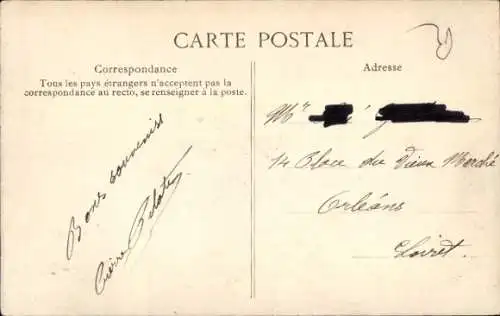 CARTE POSTALE
Correspondance
Tous les pays étrangers n'acceptent pas la
correspondance au recto, se renseigner à la poste.
Bons souvenirs
Pierre
Adresse
14 Place du Vieux Marché
Orléans
Loiret.